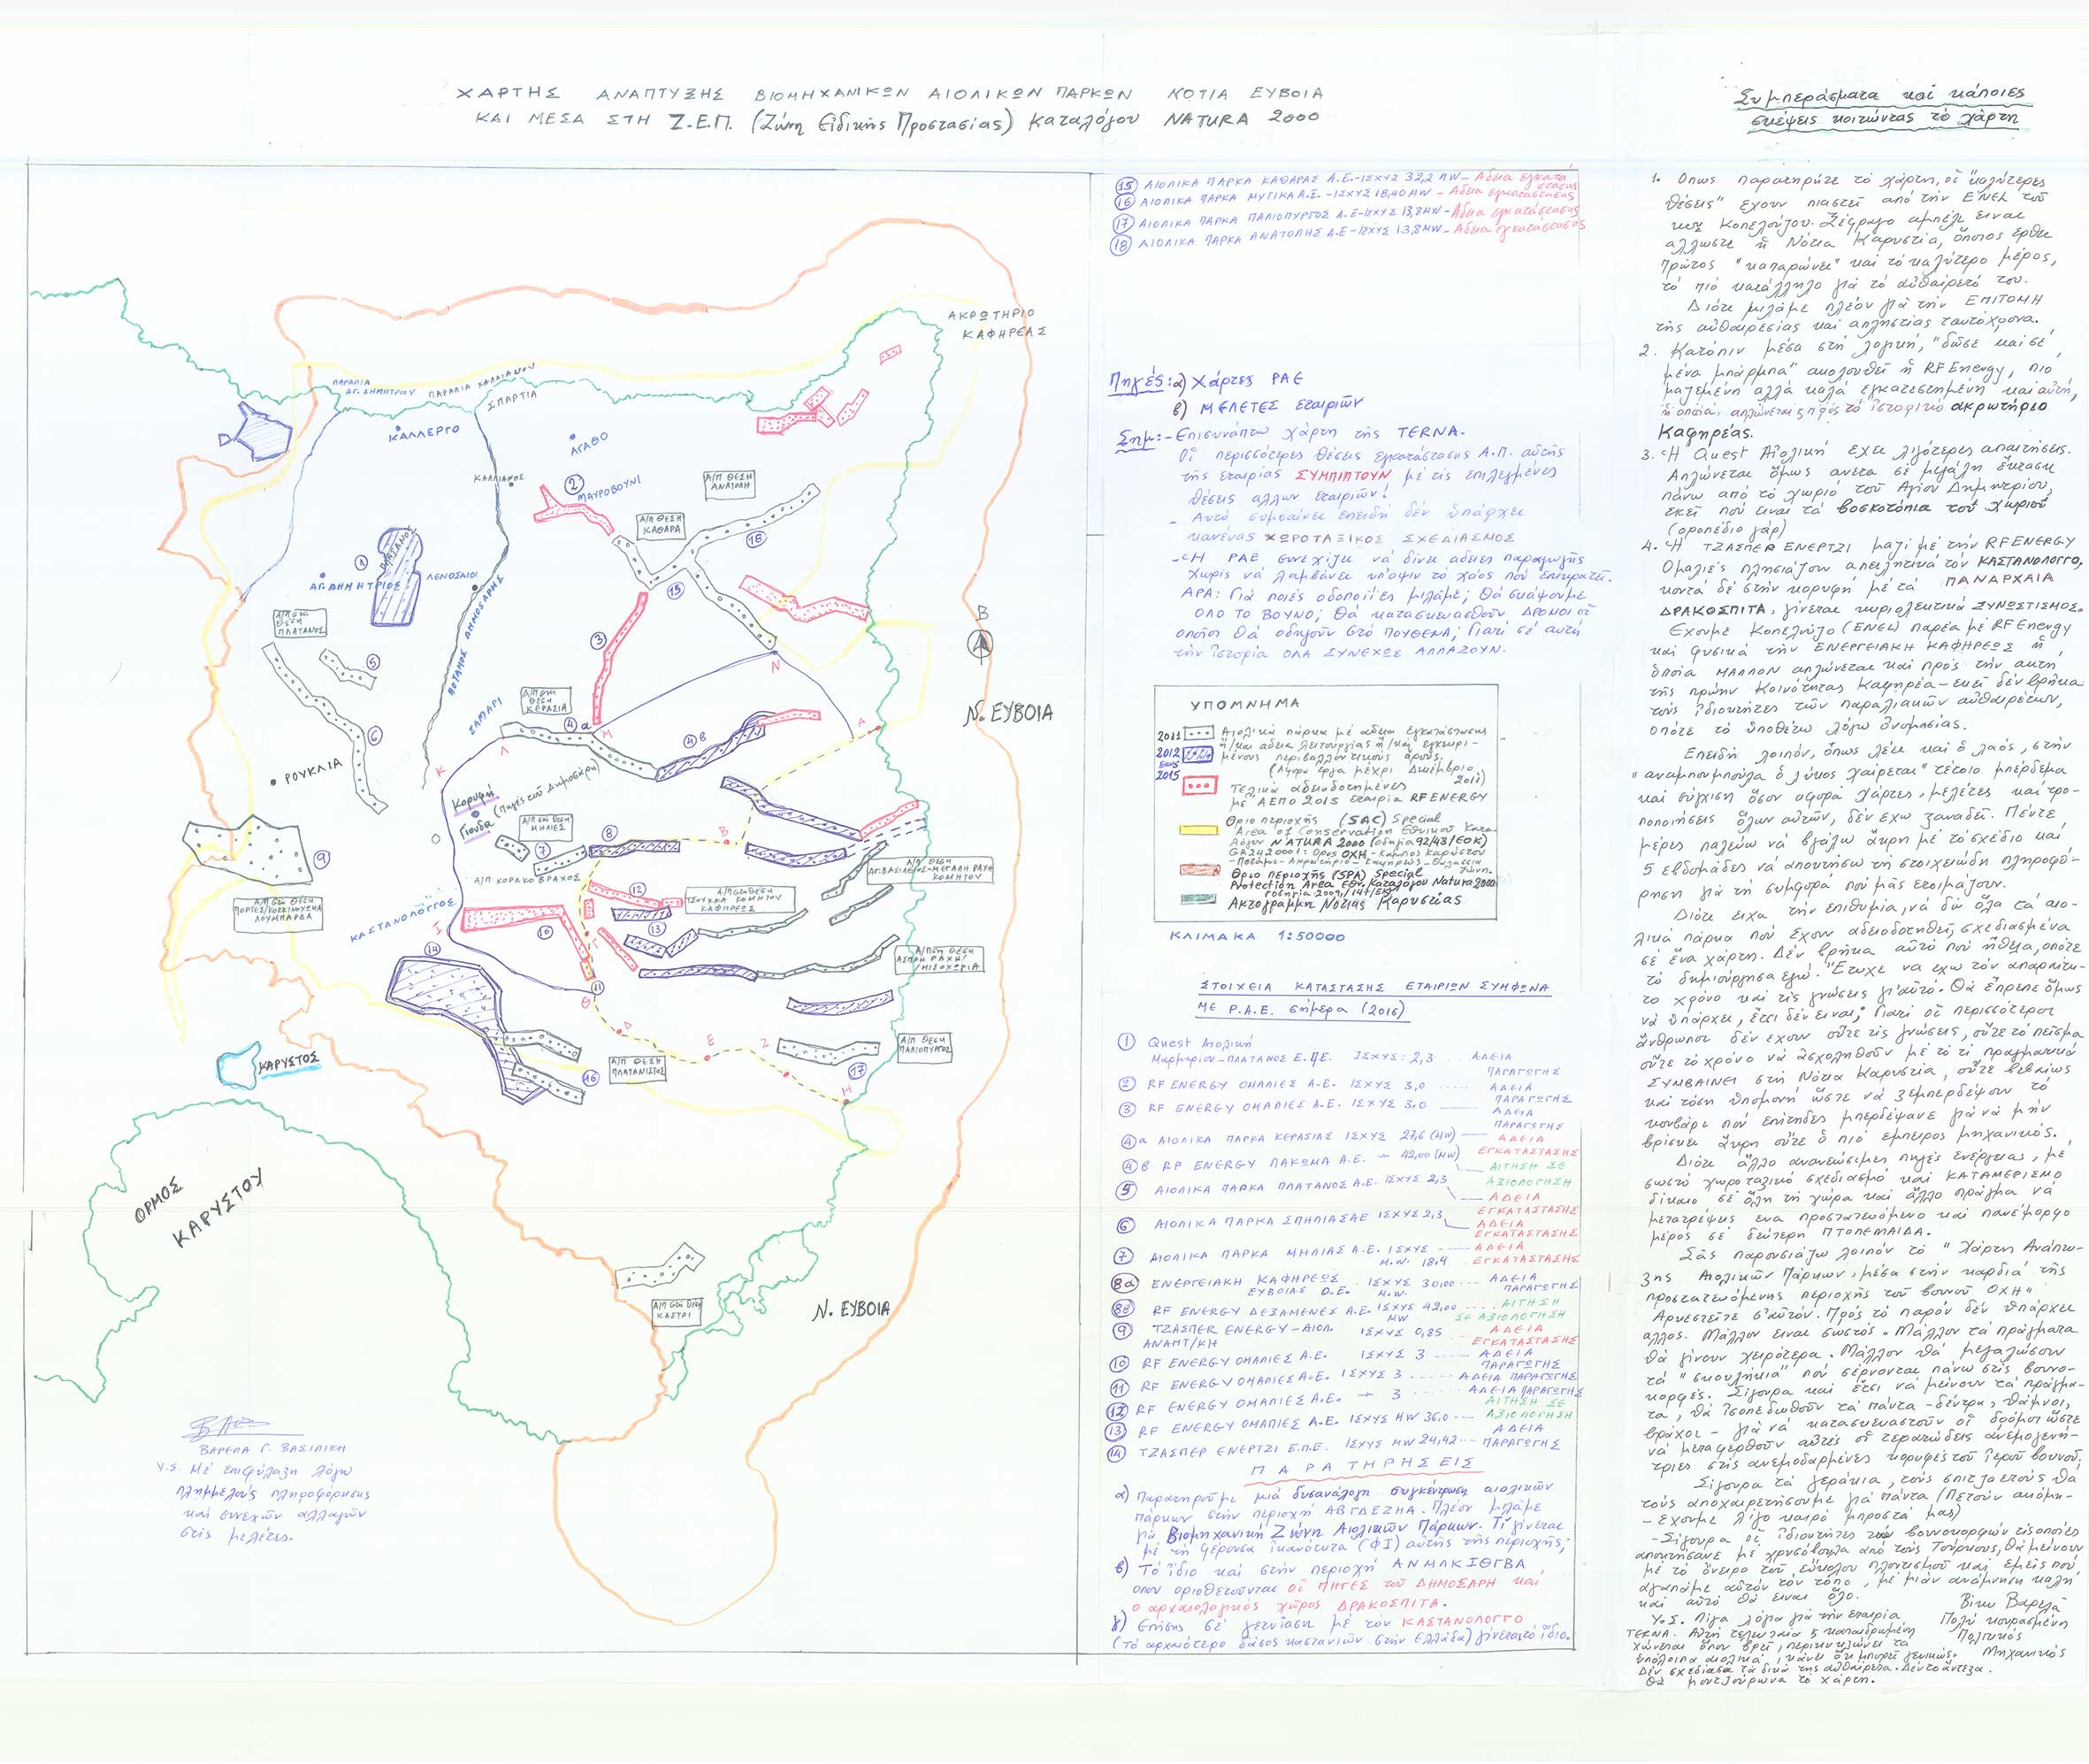 ΧΑΡΤΗΣ ΑΝΑΠΤΥΞΗΣ ΒΙΟΜΗΧΑΝΙΚΩΝ ΑΙΟΛΙΚΩΝ ΠΑΡΚΩΝ ΝΟΤΙΑ ΕΥΒΟΙΑ
ΚΑΙ ΜΕΣΑ ΣΤΗ Ζ.Ε.Π. (Ζώνη Ειδικής Προστασίας) Καταλόγου NATURA 2000
ΑΚΡΩΤΗΡΙΟ
ΚΑΦΗΡΕΑΣ
ΠΑΡΑΛΙΑ
ΑΓ. ΔΗΜΗΤΡΙΟΥ
ΠΑΡΑΛΙΑ ΚΑΛΛΙΑΝΟΥ
ΣΠΑΡΤΙΑ
ΚΑΛΛΕΡΓΟ
ΑΓΑΘΟ
ΚΑΛΛΙΑΝΟΣ
2
ΜΑΥΡΟΒΟΥΝΙ
Α/Π ΘΕΣΗ
ΑΝΑΤΟΛΗ
Α/Π ΘΕΣΗ
ΚΑΘΑΡΑ
18
1
ΠΛΑΤΑΝΟΣ
ΑΓ. ΔΗΜΗΤΡΙΟΣ
ΛΕΝΟΣΑΙΟΙ
15
Α/Π στη
ΘΕΣΗ
ΠΛΑΤΑΝΟΣ
ΠΟΤΑΜΟΣ ΔΗΜΟΣΑΡΗΣ
3
5
Β
Ν
Α/Π στη
ΘΕΣΗ
ΚΕΡΑΣΙΑ
ΣΑΜΑΡΙ
4α
Μ
4β
Α
Λ
Ν. ΕΥΒΟΙΑ
6
Κ
ΡΟΥΚΛΙΑ
Κορυφή
Γιούδα
(Πηγές του Δημοσάρη)
Α/Π στη Θέση
ΜΗΛΙΕΣ
8
Β
7
9
Α/Π ΚΟΡΑΚΟΒΡΑΧΟΣ
Α/Π ΘΕΣΗ
ΑΓ.ΒΑΣΙΛΕΙΟΣ-ΜΕΓΑΛΗ ΡΑΧΗ
ΚΟΜΗΤΟΥ
12
Α/Π στη ΘΕΣΗ
ΤΣΟΥΚΚΑ ΚΟΜΗΤΟΥ
ΚΑΦΗΡΕΩΣ
Α/Π στη ΘΕΣΗ
ΠΟΡΤΕΣ/ΚΟΣΚΙΝΟΥΣΗΜΑ
ΛΟΥΜΠΑΡΔΑ
ΚΑΣΤΑΝΟΛΟΓΓΟΣ
Ι
10
Γ
13
14
Α/Π στη ΘΕΣΗ
ΑΣΠΡΗ ΡΑΧΗ/
/ΜΙΣΟΧΩΡΙΑ
11
Θ
Δ
Ε
Ζ
Α/Π ΘΕΣΗ
ΠΑΛΙΟΠΥΡΓΟΣ
ΚΑΡΥΣΤΟΣ
16
Α/Π ΘΕΣΗ
ΠΛΑΤΑΝΙΣΤΟΣ
17
Η
ΟΡΜΟΣ
ΚΑΡΥΣΤΟΥ
Α/Π στη Θέση
ΚΑΣΤΡΙ
Ν. ΕΥΒΟΙΑ
ΒΑΡΕΛΑ Γ. ΒΑΣΙΛΙΚΗ
Υ.Σ. Με επιφύλαξη λόγω
πλημμελούς πληροφόρησης
και συνεχών αλλαγών
στις μελέτες.
15 ΑΙΟΛΙΚΑ ΠΑΡΚΑ ΚΑΘΑΡΑΣ Α.Ε.-ΙΣΧΥΣ 32,2 MW - Αδεια εγκατάστασης
16 ΑΙΟΛΙΚΑ ΠΑΡΚΑ ΜΥΓΙΚΑ Α.Ε. -ΙΣΧΥΣ 18,40 MW - Αδεια εγκατάστασης
17 ΑΙΟΛΙΚΑ ΠΑΡΚΑ ΠΑΛΙΟΠΥΡΓΟΣ Α.Ε-ΙΣΧΥΣ 13,8MW - Αδεια εγκατάστασης
18 ΑΙΟΛΙΚΑ ΠΑΡΚΑ ΑΝΑΤΟΛΗΣ Α.Ε-ΙΣΧΥΣ 13,8 MW - Αδεια εγκατάστασης
Πηγές: α) Χάρτες ΡΑΕ
β) ΜΕΛΕΤΕΣ εταιριών
Σημ:- Επισυνάπτω χάρτη της TERNA.
Οι περισσότερες θέσεις εγκατάστασης Α.Π. αυτής
της εταιρίας ΣΥΜΠΙΠΤΟΥΝ με τις επιλεγμένες
θέσεις άλλων εταιριών!
- Αυτό συμβαίνει επειδή δεν υπάρχει
κανένας ΧΩΡΟΤΑΞΙΚΟΣ ΣΧΕΔΙΑΣΜΟΣ
- Η ΡΑΕ συνεχίζει να δίνει άδειες παραγωγής
χωρίς να λαμβάνει υπόψιν το χάος που επικρατεί.
ΑΡΑ: Για ποιές οδοποιίες μιλάμε; Θα σκάψουμε
ΟΛΟ ΤΟ ΒΟΥΝΟ; Θα κατασκευασθούν ΔΡΟΜΟΙ οι
οποίοι θα οδηγούν στο ΠΟΥΘΕΝΑ; Γιατί σε αυτή
την ιστορία ΟΛΑ ΣΥΝΕΧΩΣ ΑΛΛΑΖΟΥΝ.
ΥΠΟΜΝΗΜΑ
2011 Αιολικά πάρκα με άδεια εγκατάστασης
2012 έως 2015 ή/και άδεια λειτουργίας ή/και εγκεκρι-
μένους περιβαλλοντικούς όρους.
(Αφορά έργα μέχρι Δεκέμβριο 2011)
Τελικά αδειοδοτημένες
με ΑΕΠΟ 2015 εταιρία RF ENERGY
Όριο περιοχής (SAC) Special
Area of Conservation Εθνικού Κατα-
λόγου NATURA 2000 (οδηγία 92/43/ΕΟΚ)
GR2420001: Όρος ΟΧΗ - Κάμπος Καρύστου
-Ποτάμι - Ακρωτήριο - Καφηρέως - Θαλάσσια Ζώνη.
Όριο περιοχής (SPA) Special
Protection Area Εθν. Καταλόγου Natura 2000
Ακτογραμμή Νότιας Καρυστίας
ΚΛΙΜΑΚΑ 1:50000
ΣΤΟΙΧΕΙΑ ΚΑΤΑΣΤΑΣΗΣ ΕΤΑΙΡΙΩΝ ΣΥΜΦΩΝΑ
ΜΕ Ρ.Α.Ε. σήμερα (2016)
1 Quest Αιολική
Μαρμαρίου-ΠΛΑΤΑΝΟΣ Ε.Π.Ε. ΙΣΧΥΣ: 2,3 ... ΑΔΕΙΑ ΠΑΡΑΓΩΓΗΣ
2 RF ENERGY ΟΜΑΛΙΕΣ Α.Ε. ΙΣΧΥΣ 3,0 ..... ΑΔΕΙΑ ΠΑΡΑΓΩΓΗΣ
3 RF ENERGY ΟΜΑΛΙΕΣ Α.Ε. ΙΣΧΥΣ 3.0 — ΑΔΕΙΑ ΠΑΡΑΓΩΓΗΣ
4α ΑΙΟΛΙΚΑ ΠΑΡΚΑ ΚΕΡΑΣΙΑΣ ΙΣΧΥΣ 27,6 (MW) — ΑΔΕΙΑ ΕΓΚΑΤΑΣΤΑΣΗΣ
4β RF ENERGY ΠΑΚΩΜΑ Α.Ε. - 42,00 (MW) ΑΙΤΗΣΗ ΣΕ ΑΞΙΟΛΟΓΗΣΗ
5 ΑΙΟΛΙΚΑ ΠΑΡΚΑ ΠΛΑΤΑΝΟΣ Α.Ε. ΙΣΧΥΣ 2,3 ΑΔΕΙΑ ΕΓΚΑΤΑΣΤΑΣΗΣ
6 ΑΙΟΛΙΚΑ ΠΑΡΚΑ ΣΠΗΛΙΑΣ ΑΕ ΙΣΧΥΣ 2,3 ΑΔΕΙΑ ΕΓΚΑΤΑΣΤΑΣΗΣ
7 ΑΙΟΛΙΚΑ ΠΑΡΚΑ ΜΗΛΙΑΣ Α.Ε. ΙΣΧΥΣ M.W. 18,4 — ΑΔΕΙΑ ΕΓΚΑΤΑΣΤΑΣΗΣ
8α ΕΝΕΡΓΕΙΑΚΗ ΚΑΦΗΡΕΩΣ ΕΥΒΟΙΑΣ Ο.Ε. ΙΣΧΥΣ 30,00 M.W. --- ΑΔΕΙΑ ΠΑΡΑΓΩΓΗΣ
8β RF ENERGY ΔΕΞΑΜΕΝΕΣ Α.Ε. ΙΣΧΥΣ 42,00 MW ..... ΑΙΤΗΣΗ ΣΕ ΑΞΙΟΛΟΓΗΣΗ
9 ΤΖΑΣΠΕΡ ENERGY - ΑΙΟΛ. ΑΝΑΠΤ/ΚΗ ΙΣΧΥΣ 0,85 ΑΔΕΙΑ ΕΓΚΑΤΑΣΤΑΣΗΣ
10 RF ENERGY ΟΜΑΛΙΕΣ Α.Ε. ΙΣΧΥΣ 3 ---- ΑΔΕΙΑ ΠΑΡΑΓΩΓΗΣ
11 RF ENERGY ΟΜΑΛΙΕΣ Α.Ε. ΙΣΧΥΣ 3 ..... ΑΔΕΙΑ ΠΑΡΑΓΩΓΗΣ
12 RF ENERGY ΟΜΑΛΙΕΣ Α.Ε. - 3 ..... ΑΔΕΙΑ ΠΑΡΑΓΩΓΗΣ
13 RF ENERGY ΟΜΑΛΙΕΣ Α.Ε. ΙΣΧΥΣ MW 36,0 --- ΑΙΤΗΣΗ ΣΕ ΑΞΙΟΛΟΓΗΣΗ
14 ΤΖΑΣΠΕΡ ΕΝΕΡΤΖΙ Ε.Π.Ε. ΙΣΧΥΣ MW 24,42 --- ΑΔΕΙΑ ΠΑΡΑΓΩΓΗΣ
ΠΑΡΑΤΗΡΗΣΕΙΣ
α) Παρατηρούμε μιά δυσανάλογη συγκέντρωση αιολικών
πάρκων στην περιοχή ΑΒΓΔΕΖΗΑ. Πλέον μιλάμε
για Βιομηχανική Ζώνη Αιολικών Πάρκων. Τι γίνεται
με τη φέρουσα ικανότητα (ΦΙ) αυτής της περιοχής;
β) Το ίδιο και στην περιοχή ΑΝΜΛΚΙΘΓΒΑ
όπου οριοθετούνται οι ΠΗΓΕΣ του ΔΗΜΟΣΑΡΗ και
ο αρχαιολογικός χώρος ΔΡΑΚΟΣΠΙΤΑ.
γ) Επίσης σε γειτνίαση με τον ΚΑΣΤΑΝΟΛΟΓΓΟ
(Το αρχαιότερο δάσος καστανιών στην Ελλάδα) γίνεται το ίδιο.
Συμπεράσματα και κάποιες
σκέψεις κοιτώντας το χάρτη
1. Όπως παρατηρείτε το χάρτη, οι "καλύτερες
θέσεις" έχουν πιαστεί από την ΕΝΕΛ του
κου Κοπελούζου. Ξέφραγο αμπέλι είναι
άλλωστε η Νότια Καρυστία, όποιος έρθει
πρώτος "καπαρώνει" και το καλύτερο μέρος,
το πιό κατάλληλο για το αυθαίρετό του.
Διότι μιλάμε πλέον για την ΕΠΙΤΟΜΗ
της αυθαιρεσίας και απληστίας ταυτόχρονα.
2. Κατόπιν μέσα στη λογική, "δώσε και σε
μένα μπάρμπα" ακολουθεί η RF Energy, πιο
μαζεμένη αλλά καλά εγκατεστημένη και αυτή,
η οποία απλώνεται προς το ιστορικό ακρωτήριο
Καφηρέας.
3. Η Quest Αιολική έχει λιγότερες απαιτήσεις.
Απλώνεται όμως άνετα σε μεγάλη έκταση
πάνω από το χωριό του Αγίου Δημητρίου,
εκεί που είναι τα βοσκοτόπια του χωριού
(οροπέδιο γαρ)
4. Η ΤΖΑΣΠΕΡ ΕΝΕΡΤΖΙ μαζί με την RF ENERGY
Ομαλιές πλησιάζουν απειλητικά τον ΚΑΣΤΑΝΟΛΟΓΓΟ,
κοντά δε στην κορυφή με τα ΠΑΝΑΡΧΑΙΑ
ΔΡΑΚΟΣΠΙΤΑ, γίνεται κυριολεκτικά ΣΥΝΩΣΤΙΣΜΟΣ.
Έχουμε Κοπελούζο (ENEL) παρέα με RF Energy
και φυσικά την ΕΝΕΡΓΕΙΑΚΗ ΚΑΦΗΡΕΩΣ η
οποία ΜΑΛΛΟΝ απλώνεται και προς την ακτή
της πρώην Κοινότητας Καφηρέα - εκεί δεν βρήκα
τους ιδιοκτήτες των παραλιακών αυθαιρέτων,
οπότε το υποθέτω λόγω ονομασίας.
Επειδή λοιπόν, όπως λέει και ο λαός, στην
"αναμπουμπούλα ο λύκος χαίρεται" τέτοιο μπέρδεμα
και σύγχιση όσον αφορά χάρτες, μελέτες και τρο-
ποποιήσεις όλων αυτών, δεν έχω ξαναδεί. Πέντε
μέρες παλεύω να βγάλω άκρη με το σχέδιο και
5 εβδομάδες να αποκτήσω τη στοιχειώδη πληροφό-
ρηση για τη συμφορά που μας ετοιμάζουν.
Διότι είχα την επιθυμία, να δω όλα τα αιο-
λικά πάρκα που έχουν αδειοδοτηθεί, σχεδιασμένα
σε ένα χάρτη. Δεν βρήκα αυτό που ήθελα, οπότε
το δημιούργησα εγώ. Έτυχε να έχω τον απαραίτη-
το χρόνο και τις γνώσεις γι' αυτό. Θα έπρεπε όμως
να υπάρχει, έτσι δεν είναι; Γιατί οι περισσότεροι
άνθρωποι δεν έχουν ούτε τις γνώσεις, ούτε το πείσμα
ούτε το χρόνο να ασχοληθούν με το τι πραγματικά
ΣΥΜΒΑΙΝΕΙ στη Νότια Καρυστία, ούτε βεβαίως
και τόση υπομονή ώστε να ξεμπερδέψουν το
κουβάρι που επίτηδες μπερδέψανε για να μην
βρίσκει άκρη ούτε ο πιο έμπειρος μηχανικός.
Διότι άλλο ανανεώσιμες πηγές ενέργειας, με
σωστό χωροταξικό σχεδιασμό και ΚΑΤΑΜΕΡΙΣΜΟ
δίκαιο σε όλη τη χώρα και άλλο πράγμα να
μετατρέψεις ένα προστατευόμενο και πανέμορφο
μέρος σε δεύτερη ΠΤΟΛΕΜΑΙΔΑ.
Σας παρουσιάζω λοιπόν το "Χάρτη Ανάπτυ-
ξης Αιολικών Πάρκων, μέσα στην καρδιά της
προστατευόμενης περιοχής του βουνού ΟΧΗ"
Αρκεστείτε σ' αυτόν. Προς το παρόν δεν υπάρχει
άλλος. Μάλλον είναι σωστός. Μάλλον τα πράγματα
θα γίνουν χειρότερα. Μάλλον θα μεγαλώσουν
τα "σκουλήκια" που σέρνονται πάνω στις βουνο-
κορφές. Σίγουρα και έτσι να μείνουν τα πράγμα-
τα, θα ισοπεδωθούν τα πάντα - δέντρα, θάμνοι,
βράχοι - για να κατασκευαστούν οι δρόμοι ώστε
να μεταφερθούν αυτές οι τερατώδεις ανεμογεννή-
τριες στις ανεμοδαρμένες κορυφές του Ιερού βουνού.
Σίγουρα τα γεράκια, τους σπιζαετούς θα
τους αποχαιρετήσουμε για πάντα (Πετούν ακόμη-
- έχουμε λίγο καιρό μπροστά μας)
- Σίγουρα οι ιδιοκτήτες των βουνοκορφών τις οποίες
αποκτήσανε με χρυσόβουλα από τους Τούρκους, θα μείνουν
με το όνειρο του εύκολου πλουτισμού και εμείς που
αγαπάμε αυτόν τον τόπο, με μιάν ανάμνηση καλή
και αυτό θα είναι όλο.
Βίκυ Βαρελά
Πολύ κουρασμένη
Πολιτικός
Μηχανικός
Υ.Σ. Λίγα λόγια για την εταιρία
TERNA. Αυτή τελευταία
χώνεται όπου βρεί, περικυκλώνει τα
υπόλοιπα αιολικά, κάνει ότι μπορεί γενικώς.
Δεν σχεδίασα τα δικά της αυθαίρετα. Δεν το άντεξα.
Θα μουτζούρωνα το χάρτη.